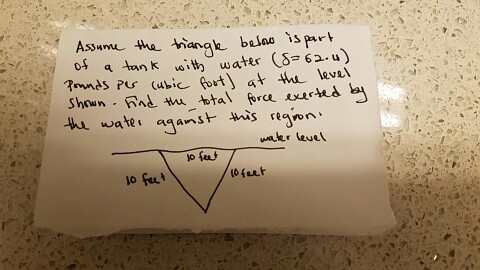 Assume the triangle below is part
of a tank with water (δ=62.4)
Pounds per cubic foot) at the level
shown. Find the total force exerted by
the water against this region.
water level
10 feet
10 feet
10 feet